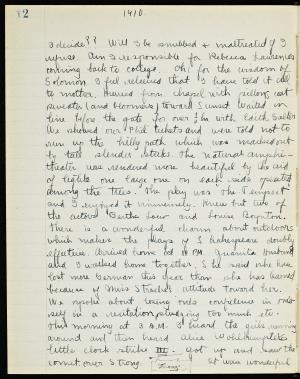 12
1910.
I decide?? Will I be snubbed & maltreated if I
refuse. Am I responsible for Rebecca Lawrence's
coming back to college. Oh! for the wisdom of
Solomon. I feel relieved that I have told it all
to mother. Hurried from chapel with pillow, coat
sweater (and bloomers) toward Sunset. Waited in
line before the gate for over ½ hr with Edith
We showed our Phil tickets and were told not to
run up the hilly path which was marked out
by tall slender sticks. The natural amphi-
theater was rendered more beautiful by the aid
of lights one large one on each side
among the trees. The play was "The Tempest"
and I enjoyed it immensely. Knew but two of
the actors Bertha and Louise Boynton.
There is a wonderful charm about outdoors
which makes the plays of Shakespeare doubly
effective. Arrived home 10 P.M. Juanita
and I walked home together, & she said she have
lost more German this year than she has learned
because of Miss attitude toward her.
We spoke about losing one's confidence in one-
self in a recitation, studying too much etc.
This morning at 3 A.M. I heard the girls moving
around and then heard Alice
little clock strike III. Got up and saw the
comet over S Wing. It was wonderful